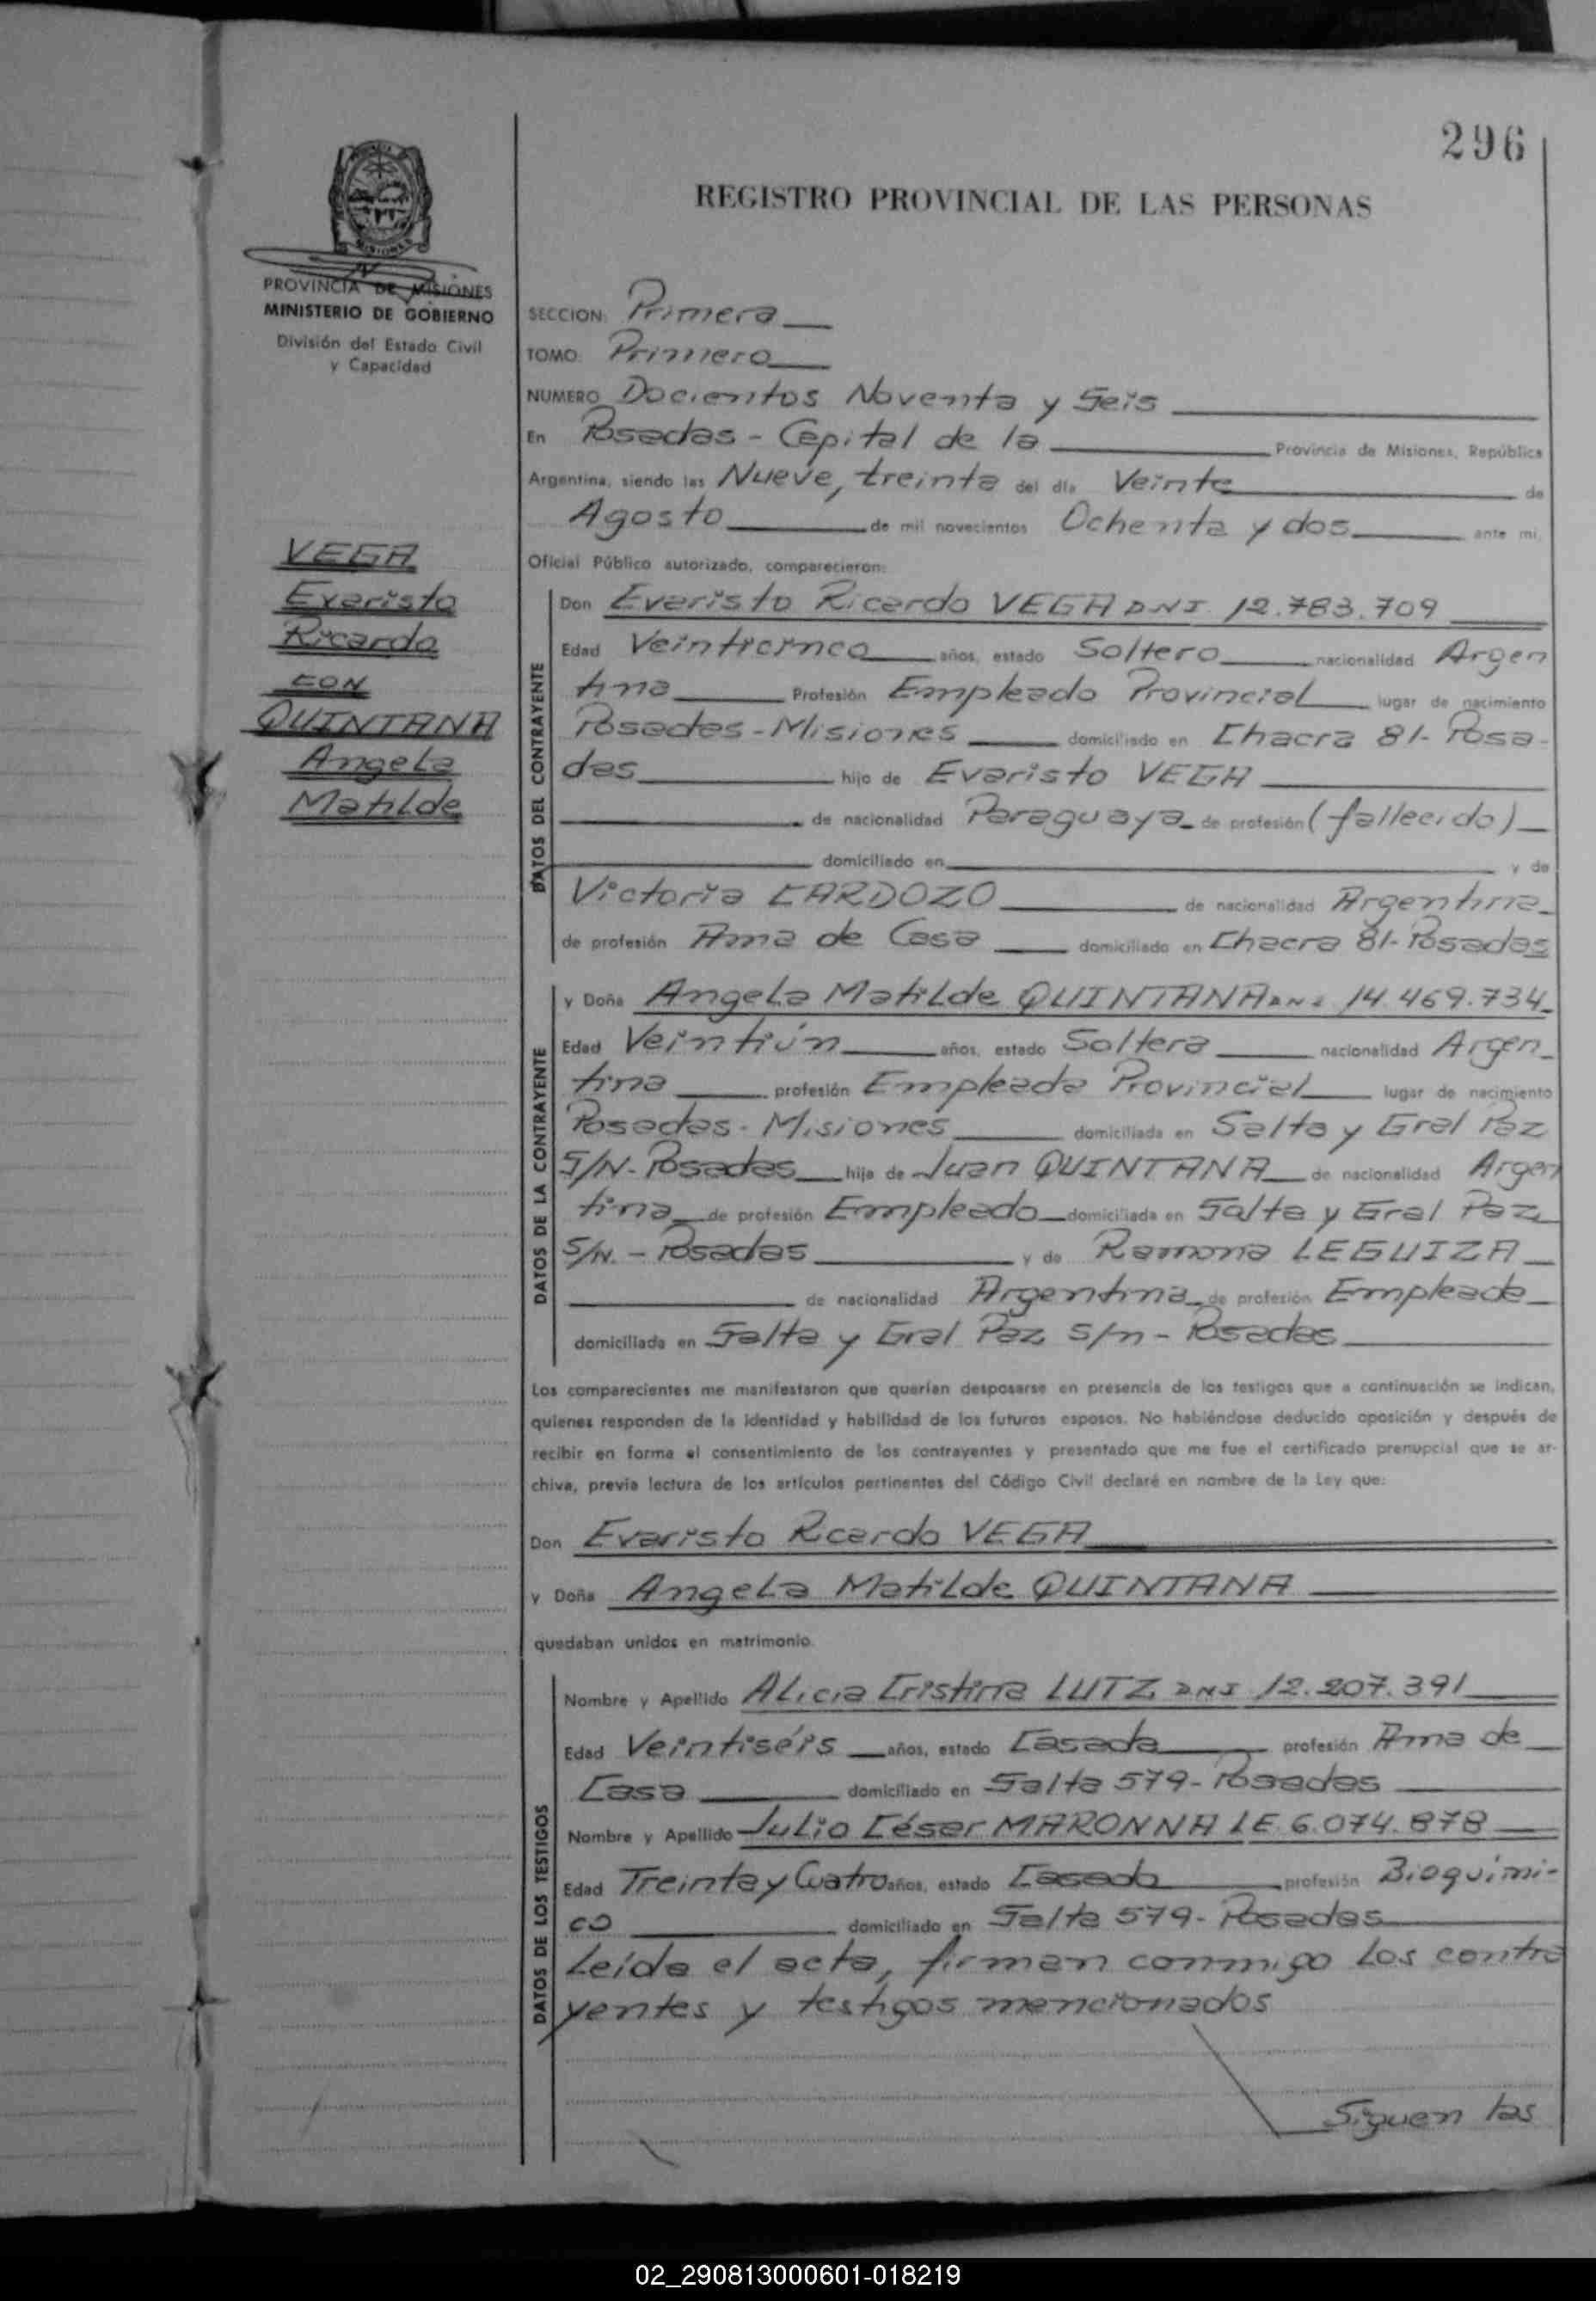 296
REGISTRO PROVINCIAL DE LAS PERSONAS
MISIONES
PROVINCIA DE MISIONES
MINISTERIO DE GOBIERNO
División del Estado Civil
y Capacidad
VEGA
Evaristo
Ricardo
CON
QUINTANA
Angela
Matilde
SECCION: Primera
TOMO: Primero
NUMERO Docientos Noventa y Seis
En Posadas - Capital de la Provincia de Misiones, República
Argentina, siendo las Nueve, treinta del día Veinte de
Agosto de mil novecientos Ochenta y dos ante mi,
Oficial Público autorizado, comparecieron:
DATOS DEL CONTRAYENTE
Don Evaristo Ricardo VEGA DNI 12.783.709
Edad Veinticinco años, estado Soltero nacionalidad Argen
tina Profesión Empleado Provincial lugar de nacimiento
Posadas - Misiones domiciliado en Chacra 81- Posa-
das hijo de Evaristo VEGA
de nacionalidad Paraguaya de profesión (fallecido)
domiciliado en y de
Victoria CARDOZO de nacionalidad Argentina
de profesión Ama de Casa domiciliada en Chacra 81- Posadas
DATOS DE LA CONTRAYENTE
y Doña Angela Matilde QUINTANA DNI 14.469.734
Edad Veintiún años, estado Soltera nacionalidad Argen
tina profesión Empleada Provincial lugar de nacimiento
Posadas - Misiones domiciliada en Salta y Gral Paz
S/N- Posadas hija de Juan QUINTANA de nacionalidad Argen
tina de profesión Empleado domiciliada en Salta y Gral Paz
S/N. - Posadas y de Ramona LEGUIZA
de nacionalidad Argentina de profesión Empleada
domiciliada en Salta y Gral Paz S/n - Posadas
Los comparecientes me manifestaron que querían desposarse en presencia de los testigos que a continuación se indican,
quienes responden de la identidad y habilidad de los futuros esposos. No habiéndose deducido oposición y después de
recibir en forma el consentimiento de los contrayentes y presentado que me fue el certificado prenupcial que se ar-
chiva, previa lectura de los artículos pertinentes del Código Civil declaré en nombre de la Ley que:
Don Evaristo Rcardo VEGA
y Doña Angela Matilde QUINTANA
quedaban unidos en matrimonio.
DATOS DE LOS TESTIGOS
Nombre y Apellido Alicia Cristina LUTZ DNI 12.207.391
Edad Veintiséis años, estado Casada profesión Ama de
Casa domiciliado en Salta 579- Posadas
Nombre y Apellido Julio César MARONNA LE 6.074.878
Edad Treinta y Cuatro años, estado Casado profesión Bioquími-
co domiciliado en Salta 579- Posadas
Leída el acta, firman conmigo los contra
yentes y testigos mencionados
Siguen las
02_290813000601-018219